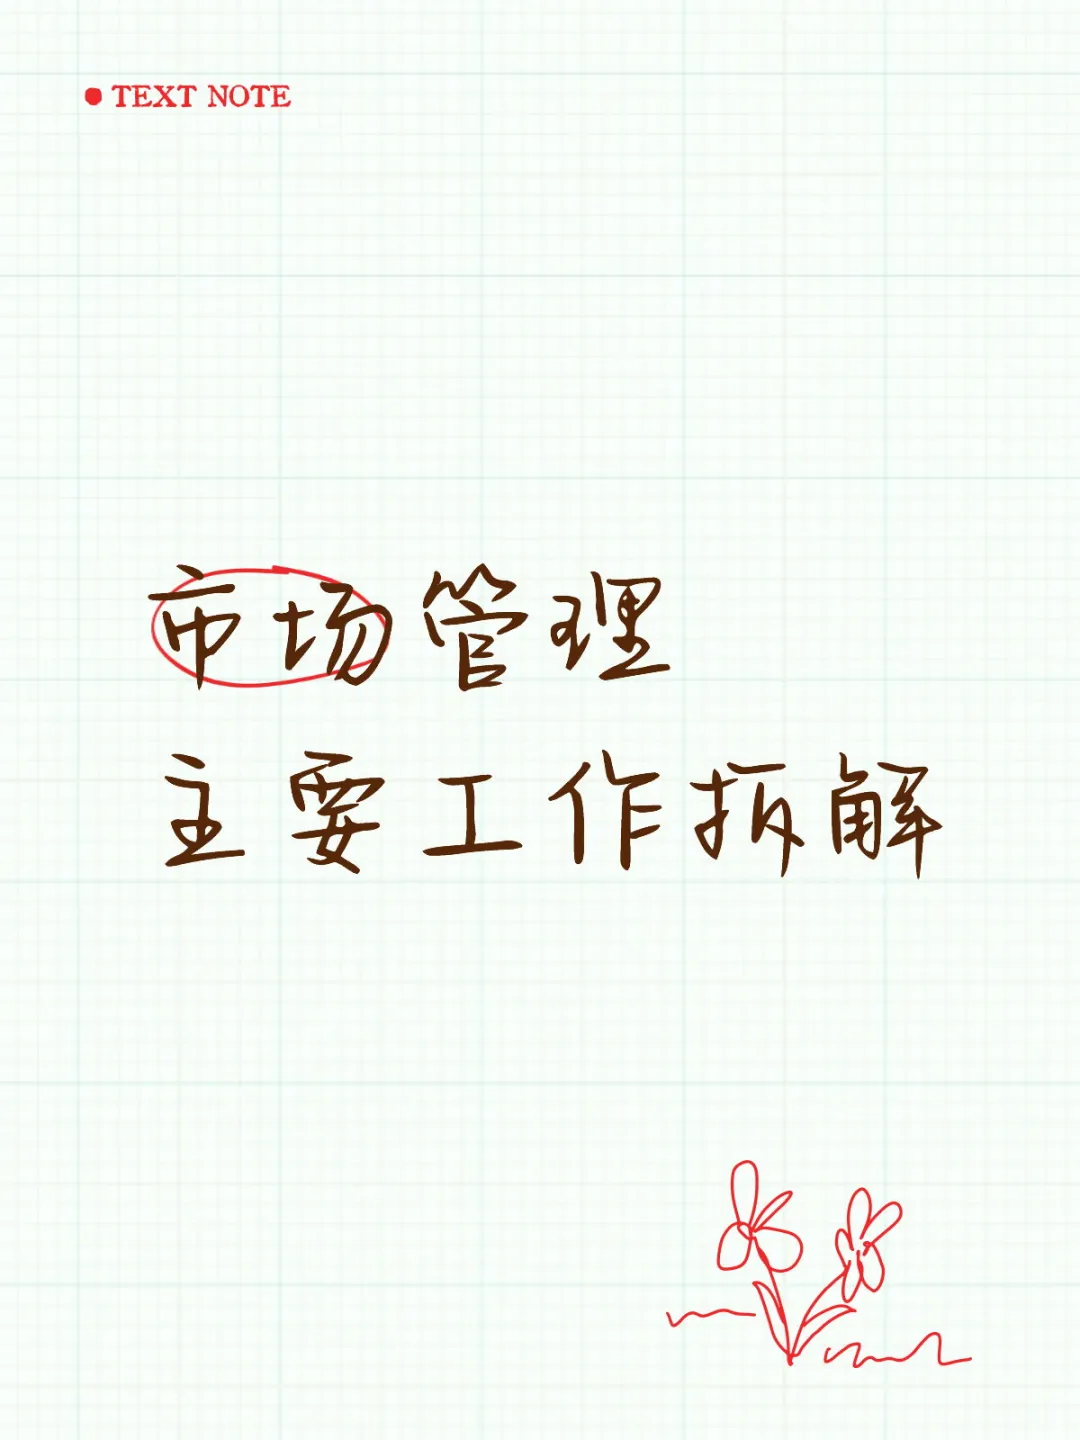 TEXT NOTE
市场管理
主要工作拆解